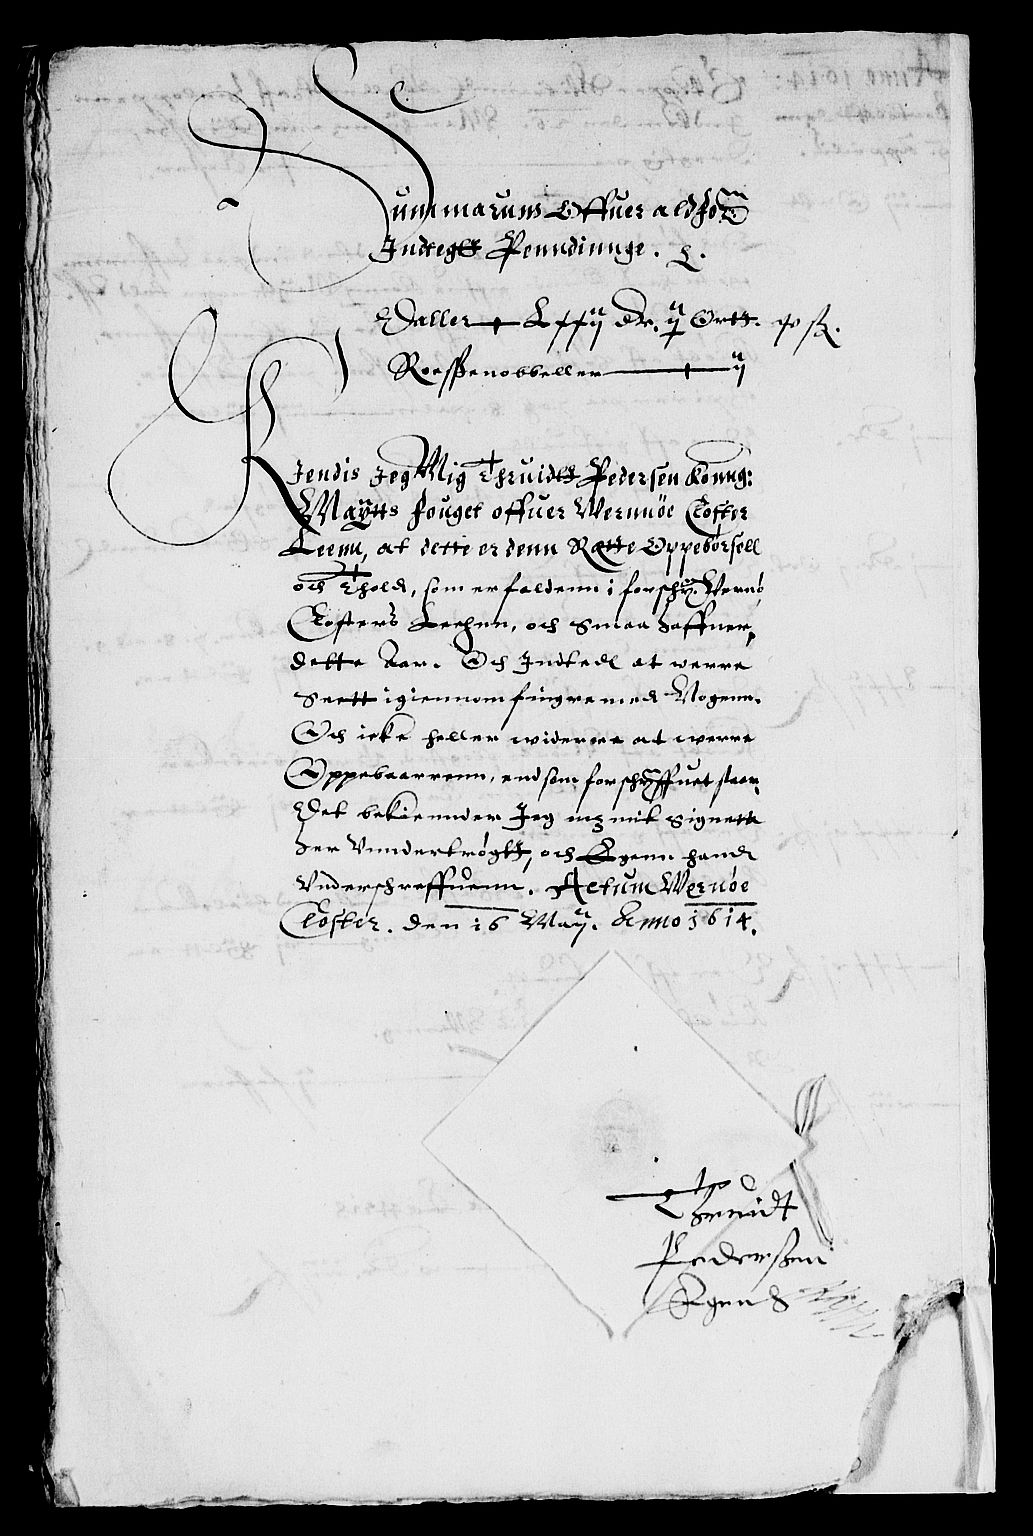 Summarum Offuer ald for:
Indtegtt Penndinnge.
Daller Lxxij Dr. ij Ortt.
Roeßenobbeller ij
Kiendis Jeg Mig Thruidtt Pedersen Konng:
Maÿtts fouget offuer Wernnöe Closter
Leenn, at dette er denn Rætte Oppebørsell
och Thold, som er faldenn i forschr: Wernö
Closters Leehnn, och Smaa Haffner,
dette Aar. Och Indted at werre
Seett igiennom fingre med Nogenn.
Och icke heller widerre at werre
Oppebaarrenn, end som forschreffuet staar.
Det bekiennder Jeg mz mit Signett
Her Vnndertrögtt, och Egenn handt
Vnderschreffuenn. Actum Wernøe
Closter. den 16 Maÿ. Anno 1614.
Thruidt
Pederßen
Egen H